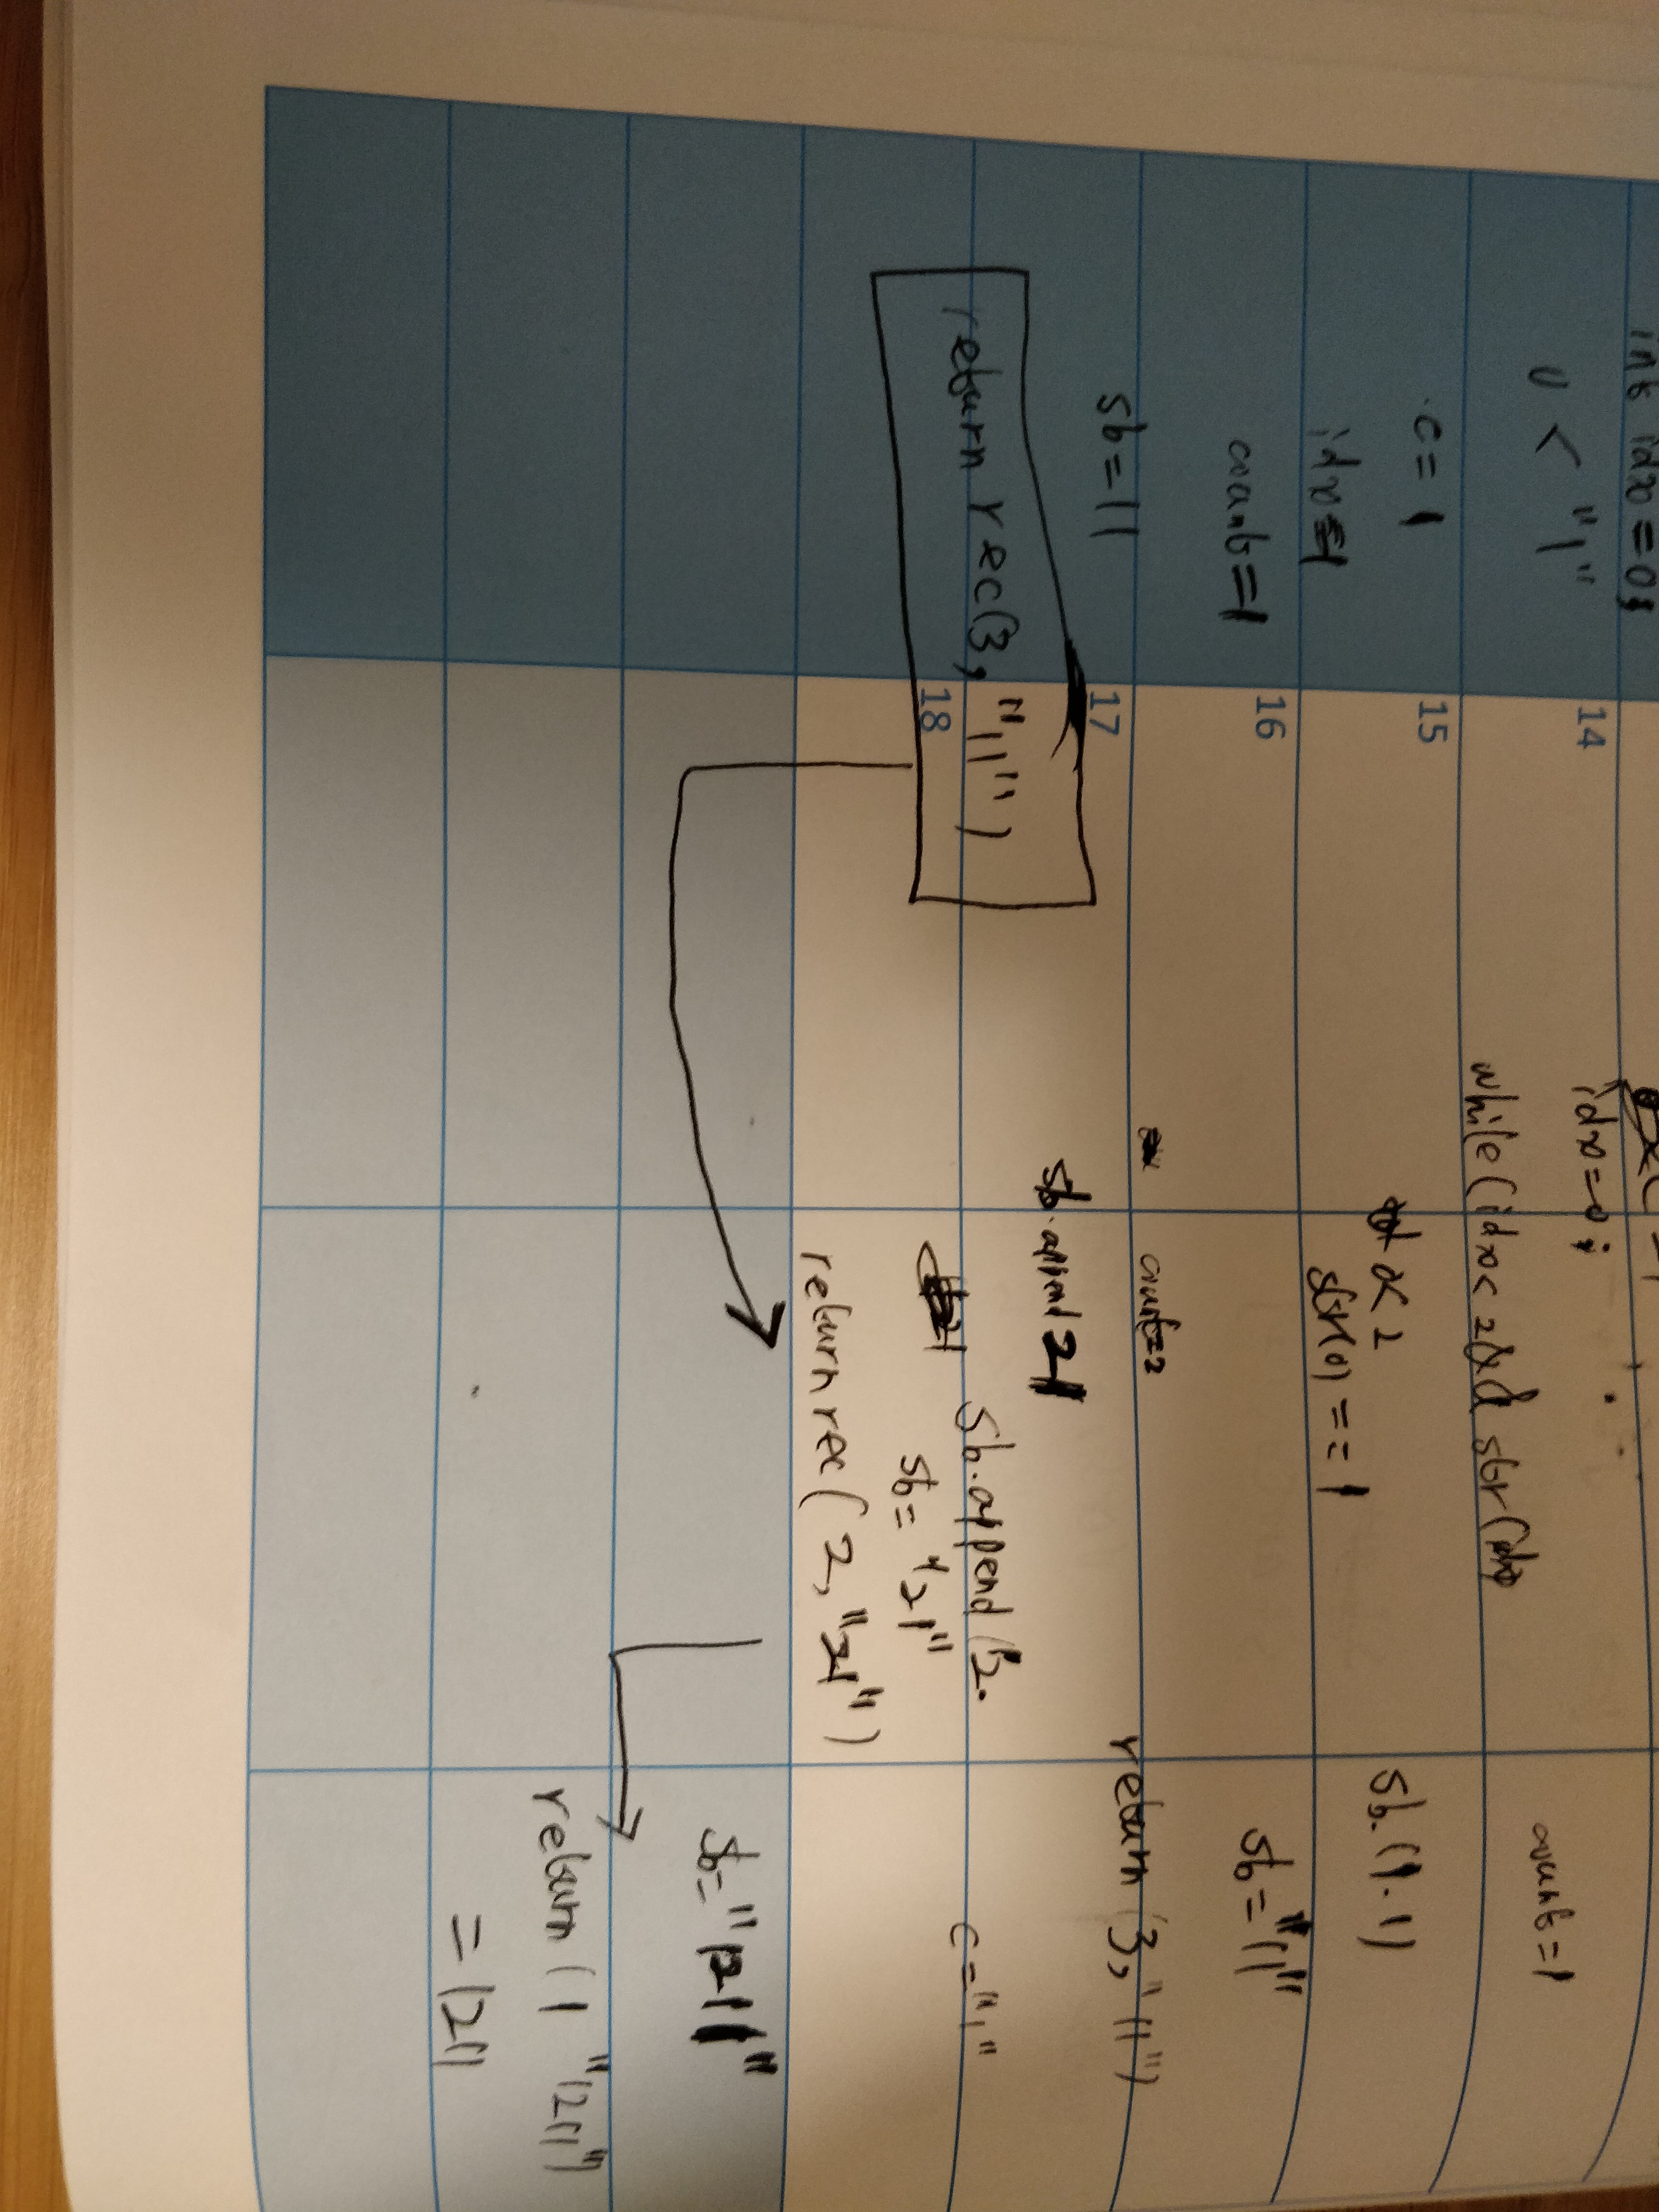 int idx = 0;
0 < "1"
c = 1
idx = 1
count = 1
sb = 11
return rec(3, "11")
14
15
16
17
18
idx = 0;
while (idx < 2 && str(
< 2
str(0) == 1
count = 2
sb.append 21
sb.append(2.
sb = "21"
return rec(2, "21")
count = 1
sb.(1.1)
sb = "11"
return (3, "11")
c = "1"
sb = "1211"
return (1 "1211")
= 1211